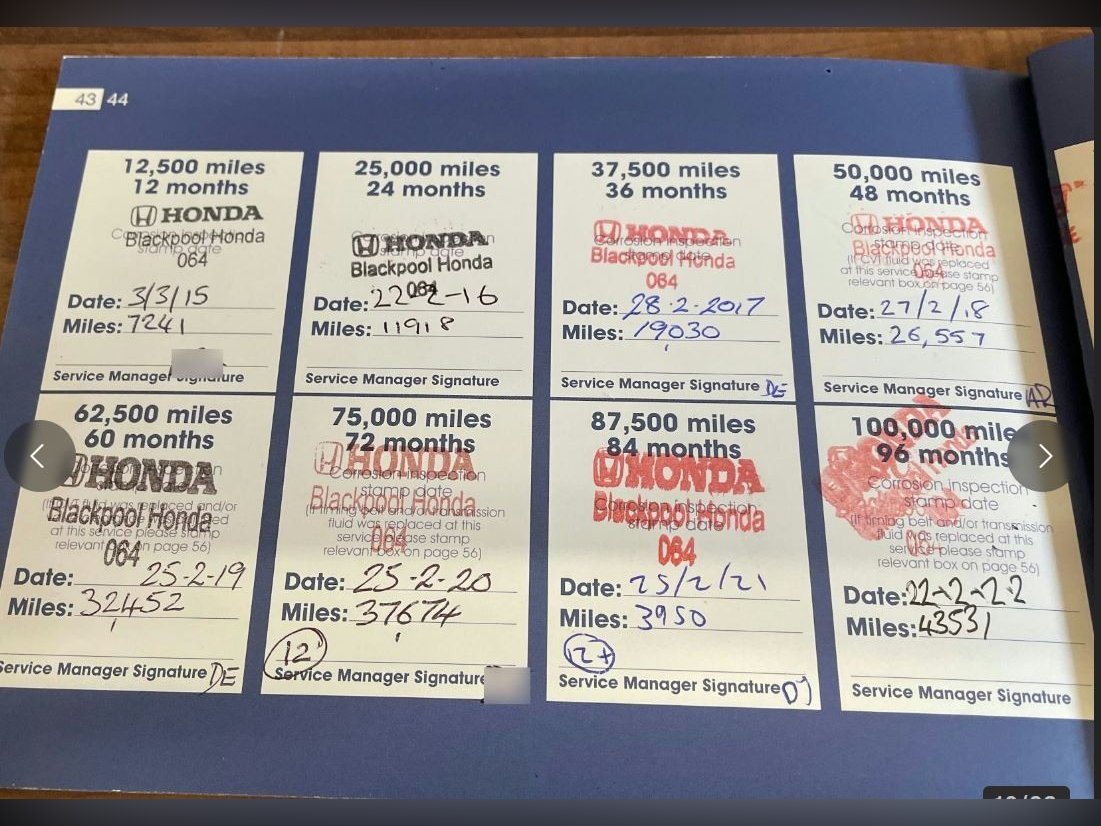 43 44
12,500 miles
12 months
HONDA
Corrosion inspection
stamp date
Blackpool Honda
064
Date: 3/3/15
Miles: 7241
Service Manager Signature
25,000 miles
24 months
HONDA
Corrosion inspection
stamp date
Blackpool Honda
064
Date: 22-2-16
Miles: 11918
Service Manager Signature
37,500 miles
36 months
HONDA
Corrosion inspection
stamp date
Blackpool Honda
064
Date: 28-2-2017
Miles: 19030
Service Manager Signature DE
50,000 miles
48 months
HONDA
Corrosion inspection
stamp date
Blackpool Honda
(If CVT fluid was replaced
at this service please stamp
064
relevant box on page 56)
Date: 27/2/18
Miles: 26,557
Service Manager Signature
62,500 miles
60 months
HONDA
Corrosion inspection
Blackpool Honda
fluid was replaced and/or
at this service please stamp
relevant box on page 56)
064
Date: 25-2-19
Miles: 32452
Service Manager Signature DE
75,000 miles
72 months
HONDA
Corrosion inspection
stamp date
Blackpool Honda
(If timing belt and/or transmission
fluid was replaced at this
service please stamp
064
relevant box on page 56)
Date: 25-2-20
Miles: 37674
12
Service Manager Signature
87,500 miles
84 months
HONDA
Corrosion inspection
stamp date
Blackpool Honda
064
Date: 25/2/21
Miles: 3950
12+
Service Manager Signature DJ
100,000 mile
96 months
Corrosion inspection
stamp date
(If timing belt and/or transmission
fluid was replaced at this
service please stamp
relevant box on page 56)
Date: 22-2-22
Miles: 43531
Service Manager Signature